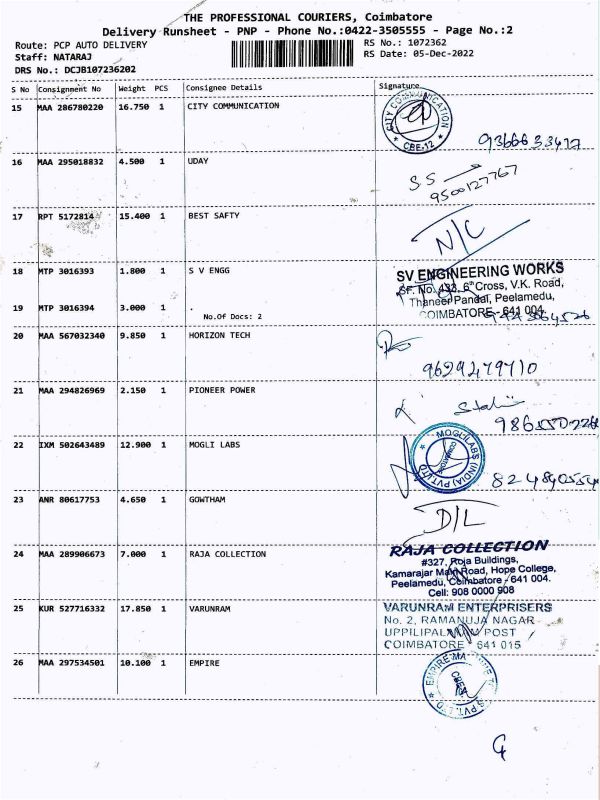 THE PROFESSIONAL COURIERS, Coimbatore
Delivery Runsheet - PNP - Phone No.:0422-3505555 - Page No.:2
Route: PCP AUTO DELIVERY
RS No.: 1072362
Staff: NATARAJ
RS Date: 05-Dec-2022
DRS No.: DCJB107236202
S No Consignment No Weight PCS Consignee Details Signature
15 MAA 286780220 16.750 1 CITY COMMUNICATION
CITY COMMUNICATION
CBE-12
9366633417
16 MAA 295018832 4.500 1 UDAY
SS
9500127767
17 RPT 5172814 15.400 1 BEST SAFTY
N/C
18 MTP 3016393 1.800 1 S V ENGG
SV ENGINEERING WORKS
SF. No. 433, 6th Cross, V.K. Road,
Thaneer Pandal, Peelamedu,
COIMBATORE - 641 004.
19 MTP 3016394 3.000 1 .
No.Of Docs: 2
20 MAA 567032340 9.850 1 HORIZON TECH
9629479710
21 MAA 294826969 2.150 1 PIONEER POWER
22 IXM 502643489 12.900 1 MOGLI LABS
MOGLILABS (INDIA) PVT LTD
COIMBATORE
23 ANR 80617753 4.650 1 GOWTHAM
D/L
24 MAA 289906673 7.000 1 RAJA COLLECTION
RAJA COLLECTION
#327, Roja Buildings,
Kamarajar Main Road, Hope College,
Peelamedu, Coimbatore - 641 004.
Cell: 908 0000 908
25 KUR 527716332 17.850 1 VARUNRAM
VARUNRAM ENTERPRISERS
No. 2, RAMANUJA NAGAR
UPPILIPALAYAM POST
COIMBATORE 641 015
26 MAA 297534501 10.100 1 EMPIRE